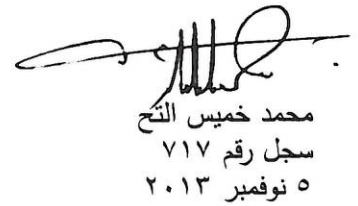 محمد خميس التح
سجل رقم ٧١٧
٥ نوفمبر ٢٠١٣